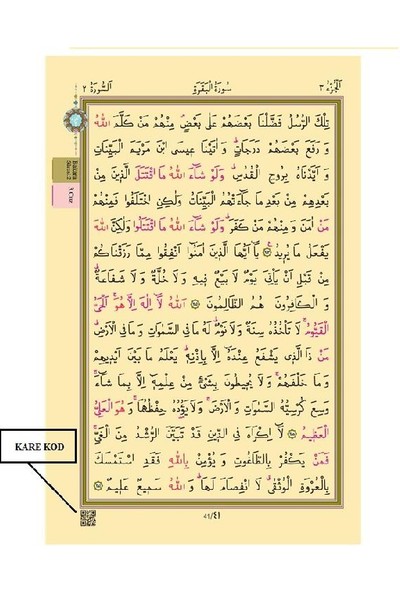 اَلْجُزْءُ ٣
سُورَةُ الْبَقَرَةِ
اَلسُّورَةُ ٢
تِلْكَ الرُّسُلُ فَضَّلْنَا بَعْضَهُمْ عَلٰى بَعْضٍۢ مِنْهُمْ مَنْ كَلَّمَ اللّٰهُ
وَرَفَعَ بَعْضَهُمْ دَرَجَاتٍۜ وَاٰتَيْنَا عِيسَى ابْنَ مَرْيَمَ الْبَيِّنَاتِ
وَاَيَّدْنَاهُ بِرُوحِ الْقُدُسِۜ وَلَوْ شَٓاءَ اللّٰهُ مَا اقْتَتَلَ الَّذِينَ مِنْ
بَعْدِهِمْ مِنْ بَعْدِ مَا جَٓاءَتْهُمُ الْبَيِّنَاتُ وَلٰكِنِ اخْتَلَفُوا فَمِنْهُمْ
مَنْ اٰمَنَ وَمِنْهُمْ مَنْ كَفَرَۜ وَلَوْ شَٓاءَ اللّٰهُ مَا اقْتَتَلُوا وَلٰكِنَّ اللّٰهَ
يَفْعَلُ مَا يُرِيدُ ﴿٢٥٣﴾ يَٓا اَيُّهَا الَّذِينَ اٰمَنُٓوا اَنْفِقُوا مِمَّا رَزَقْنَاكُمْ
مِنْ قَبْلِ اَنْ يَأْتِيَ يَوْمٌ لَا بَيْعٌ فِيهِ وَلَا خُلَّةٌ وَلَا شَفَاعَةٌۜ
وَالْكَافِرُونَ هُمُ الظَّالِمُونَ ﴿٢٥٤﴾ اَللّٰهُ لَٓا اِلٰهَ اِلَّا هُوَۚ اَلْحَيُّ
الْقَيُّومُۚ لَا تَأْخُذُهُ سِنَةٌ وَلَا نَوْمٌۜ لَهُ مَا فِي السَّمٰوَاتِ وَمَا فِي الْاَرْضِۜ
مَنْ ذَا الَّذِي يَشْفَعُ عِنْدَهُٓ اِلَّا بِاِذْنِهِۜ يَعْلَمُ مَا بَيْنَ اَيْدِيهِمْ
وَمَا خَلْفَهُمْۚ وَلَا يُحِيطُونَ بِشَيْءٍ مِنْ عِلْمِهِٓ اِلَّا بِمَا شَٓاءَۚ
وَسِعَ كُرْسِيُّهُ السَّمٰوَاتِ وَالْاَرْضَۚ وَلَا يَؤُ۫دُهُ حِفْظُهُمَاۚ وَهُوَ الْعَلِيُّ
الْعَظِيمُ ﴿٢٥٥﴾ لَٓا اِكْرَاهَ فِي الدِّينِ قَدْ تَبَيَّنَ الرُّشْدُ مِنَ الْغَيِّۚ
فَمَنْ يَكْفُرْ بِالطَّاغُوتِ وَيُؤْمِنْ بِاللّٰهِ فَقَدِ اسْتَمْسَكَ
بِالْعُرْوَةِ الْوُثْقٰىۗ لَا انْفِصَامَ لَهَاۜ وَاللّٰهُ سَمِيعٌ عَلِيمٌ ﴿٢٥٦﴾
41/٤١
KARE KOD